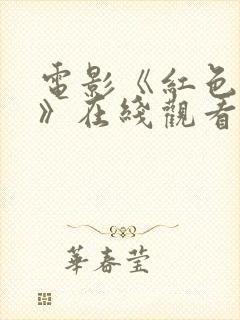 電影《紅色
》在綫觀看
華春莹